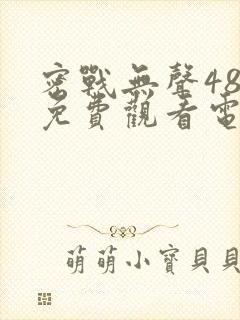 密戰無聲48
免費觀看電
萌萌小寶貝貝